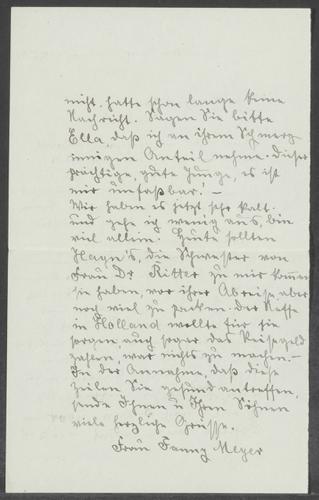 nicht. hatte schon lange keine
Nachricht. Sagen Sie bitte
Ella, daß ich an ihrem Schmerz
innigen Anteil nehme. Dieser
prächtige, gute Junge, es ist
mir unfaßbar! –
Wir haben es jetzt sehr kalt
und gehe ich wenig aus, bin
viel allein. Heute sollten
Hayn's, die Schwester von
Frau Dr Ritter zu mir kommen
sie haben, vor ihrer Abreise, aber
noch viel zu packen. Der Neffe
in Holland wollte für sie
sorgen auch sogar das Reisegeld
zahlen, war nichts zu machen. –
In der Annahme, daß diese
Zeilen Sie gesund antreffen,
sende Ihnen u Ihren Söhnen
viele herzliche Grüsse.
Frau Fanny Meyer